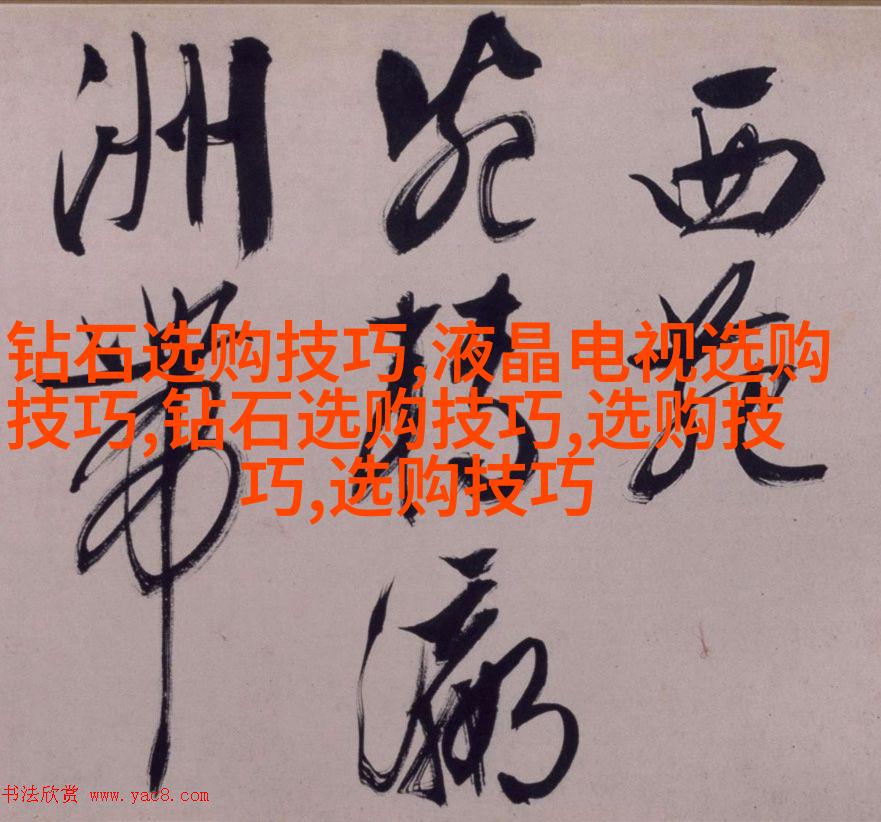 西
瀛
洲帶
钻石选购技巧,液晶电视选购
技巧,钻石选购技巧,选购技
巧,选购技巧
书法欣赏 www.yac8.com